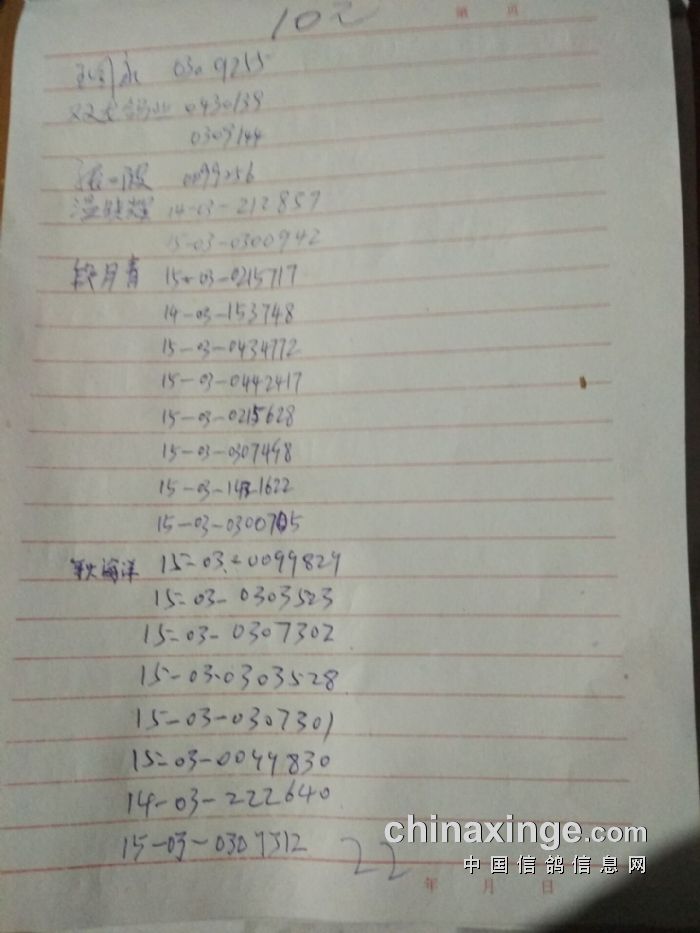 102
第 页
永 0309255
0430139
0309144
0099256
温 14-03-212857
15-03-0300942
段月青 15-03-0215717
14-03-153748
15-03-0434772
15-03-0442417
15-03-0215628
15-03-0307498
15-03-1431622
15-03-0300705
耿海洋 15-03-0099829
15-03-0303523
15-03-0307302
15-03-0303528
15-03-0307301
15-03-0099830
14-03-222640
15-03-0307312
22
chinaxinge.com
中国信鸽信息网
年 月 日